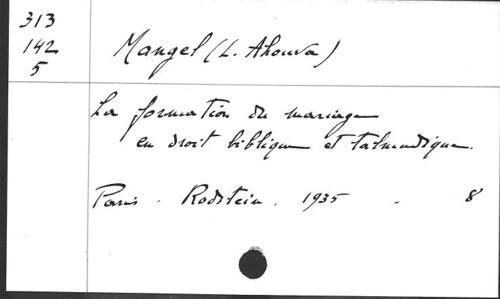 313
142
5
Mangel (L. Ahouva)
La formation du mariage
en droit biblique et talmudique.
Paris . Rodstein . 1935 - 8